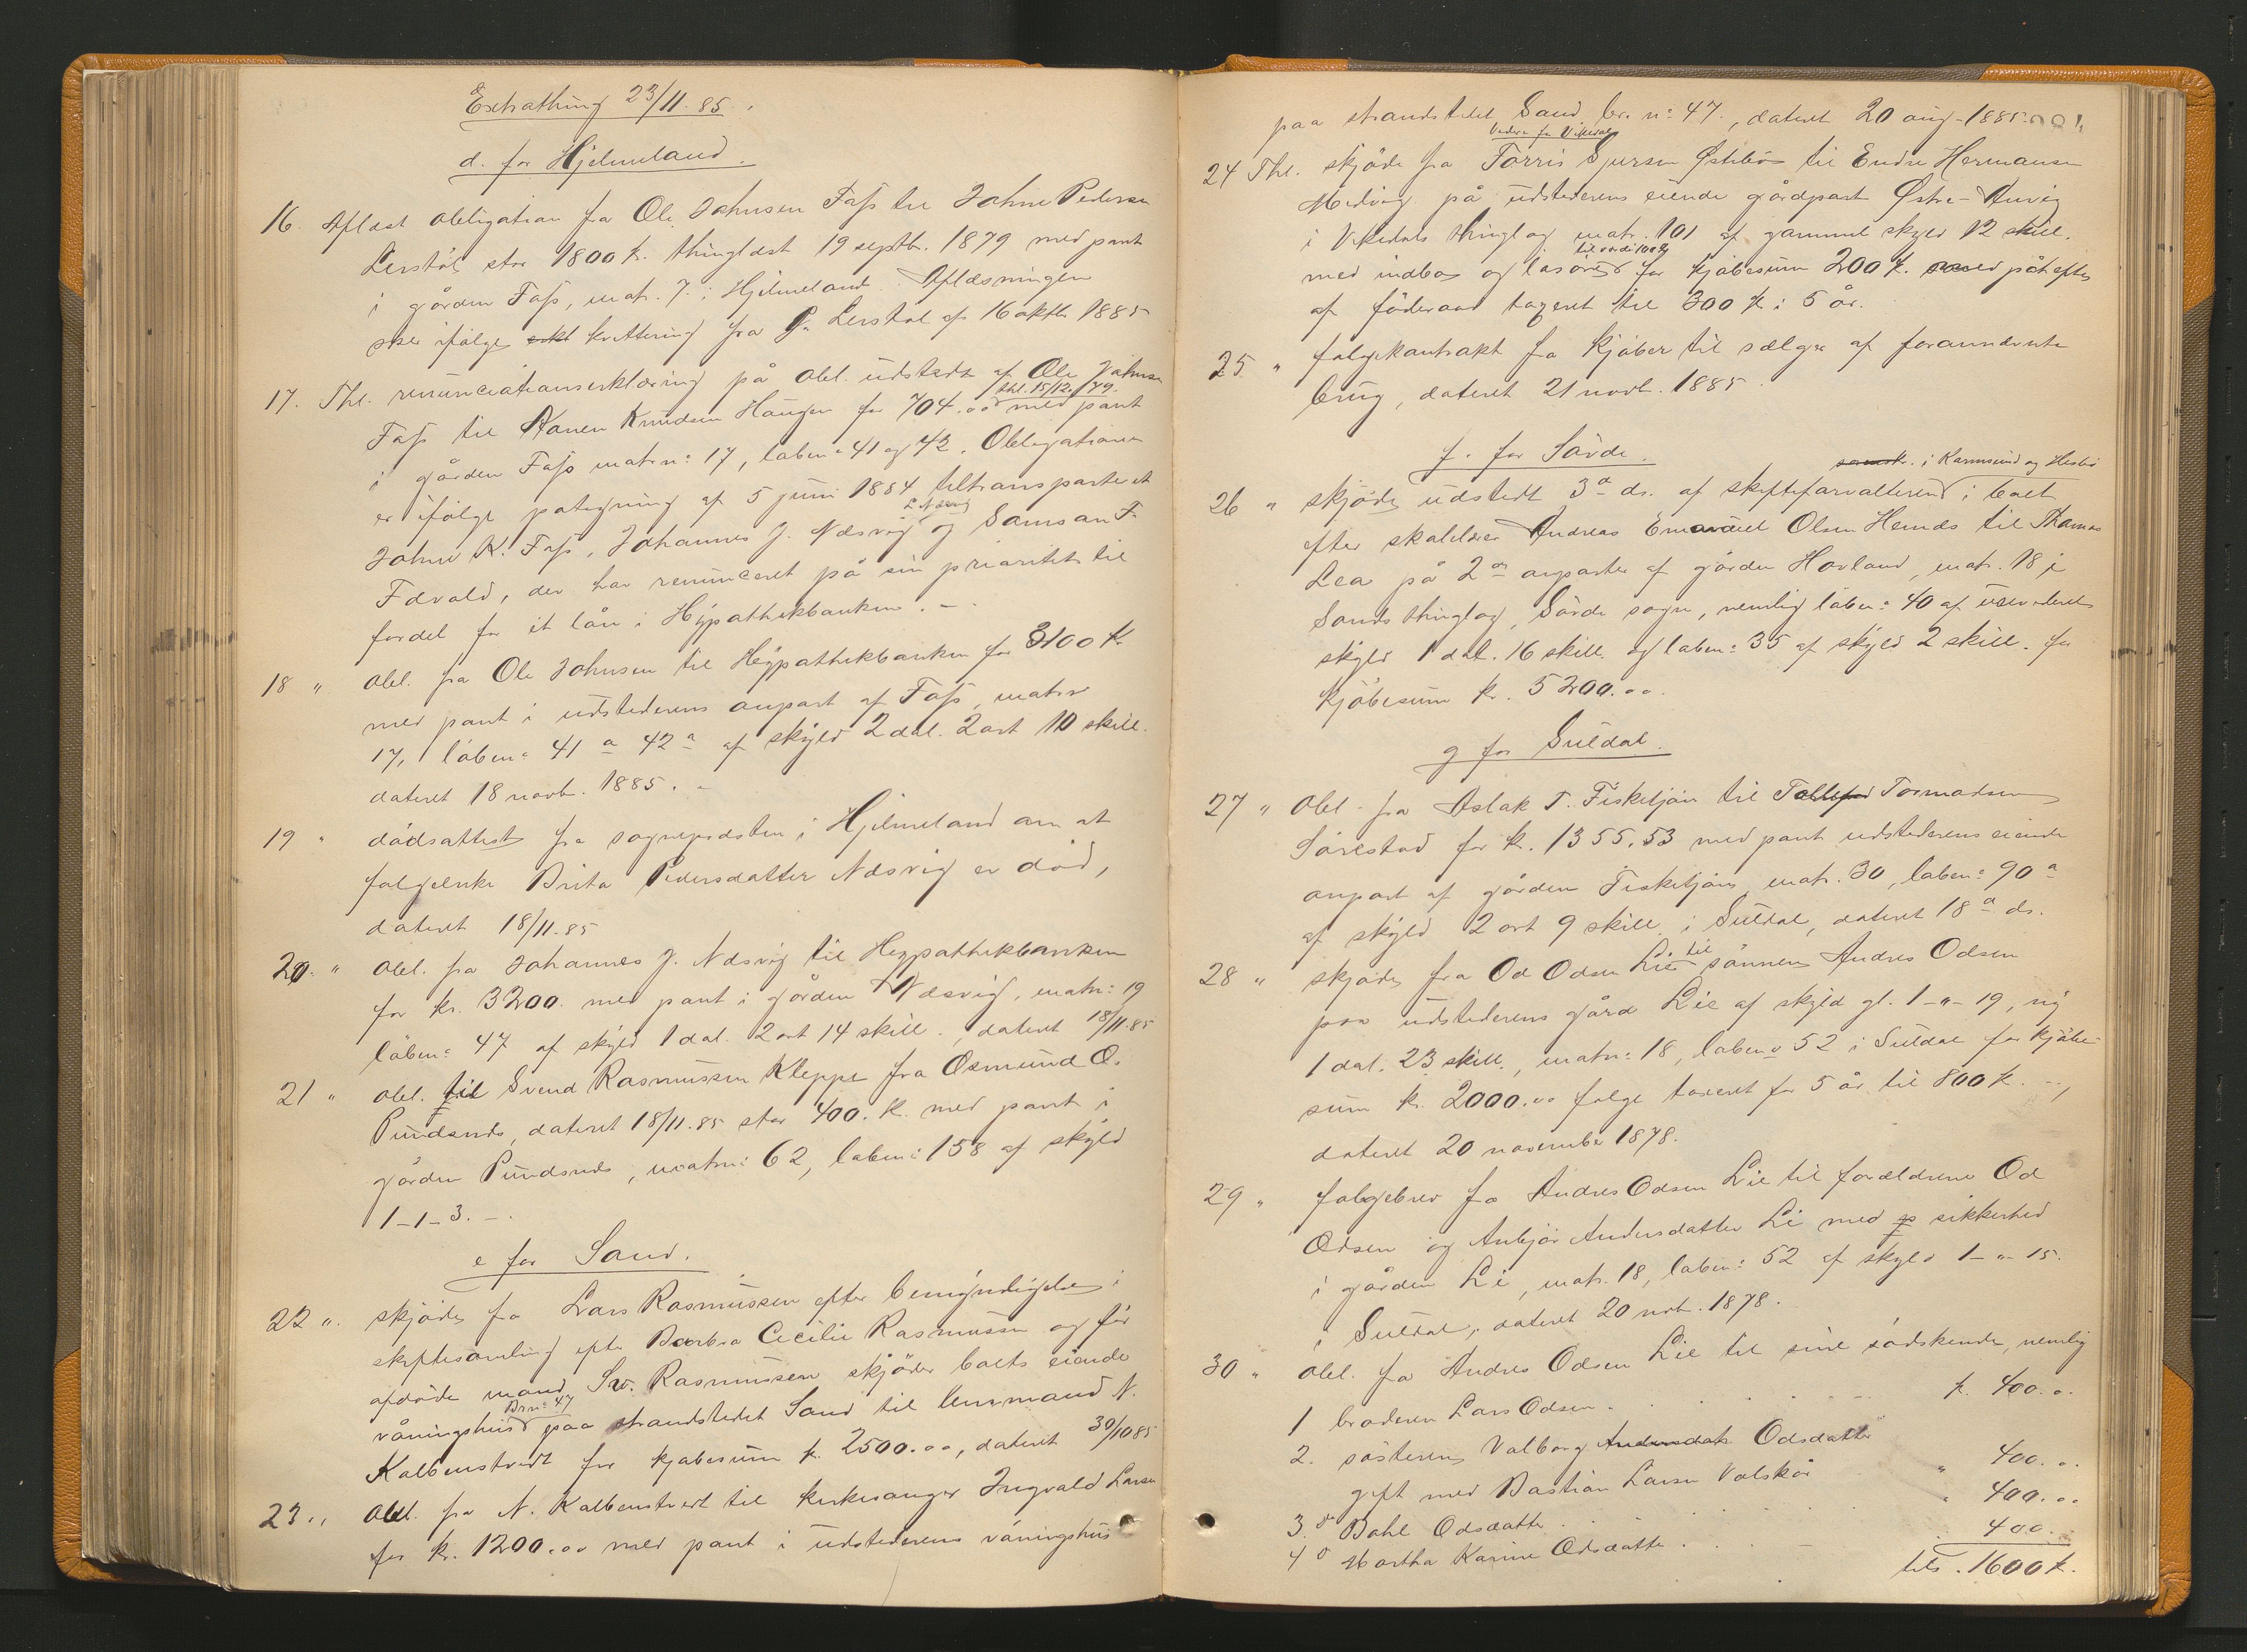 Extrathing 23/11. 85.
d. for Hjelmeland.
16. Aflæst obligation fra Ole Johnsen Fafs til John Pedersen
Lerstøl stor 1800 k. thinglæst 19 septbr. 1879 med pant
i gården Fafs, matr. 7. i Hjelmeland. Aflæsningen
sker ifølge kvittering fra P. Lerstøl af 16 oktbr 1885
17. Thl. renunciationserklæring på obl. udstedt af Ole Johnsen
Fafs til Knudsen Haugen for 704.00 thl. 15/12/79. med pant
i gården Fafs matrn: 17, løben: 41 og 42. Obligationen
er ifølge påtegning af 5 juni 1884 tiltransporteret
John K. Fafs, Johannes J. Næsvig L Næsvig og Samson F.
Fævold, der har renunceret på sin prioritet til
fordel for et lån i Hypothekbanken. –
18 " obl. fra Ole Johnsen til Hypothekbanken for 3100 k.
med pant i udstederens anpart af Fafs, matrn
17, løben: 41 a 42 a af skyld 2 dal. 2 ort 10 skill.
dateret 18 novb. 1885. –
19 " dødsattest fra sogneprdsten i Hjelmeland om at
folgeenke Brita Pedersdatter Næsvig er død,
dateret 18/11-85
20. " obl. fra Johannes J. Næsvig til Hypothekbanken
for kr. 3200. med pant i gården Næsvig, matrn: 19
løben: 47 af skyld 1 dal. 2 ort 14 skill., dateret 18/11.85
21 " obl. til Svend Rasmussen Kleppe fra Osmund O.
Pundsnes, dateret 18/11.85 stor 400. k. med pant i
gården Pundsnes, matrn: 62, løben: 158 af skyld
1-1-3. –.
e for Sand.
22 ". skjøde fra Lars Rasmussen efter bemyndigelse i
skiftesamling efter Barbra Cecilie Rasmussen og før
afdøde mand Sv. Rasmussen skjøder boets eiende
våningshus Brn: 47 paa strandstedet Sand til lensmand N.
Kolbenstvedt for kjøbesum k. 2500.00, dateret 30/10 85
23 ., obl. fra N. Kolbenstvedt til kirkesanger Ingvald Larsen
for kr. 1200.00 med pant i udstederens våningshus
paa strandstedet Sand br. n: 47., dateret 20 aug. 1885.
24 Thl. skjøde fra Torris Sjursen Østebø til Endre Hermansen
Medvig på udstederens eiende gårdpart Østre-Anvig
i Vikedals thinglag matr. 101 af gammel skyld 12 skill.
med indbo og løsøre for kjøbesum 200 k. påheftes
af føderaad taxeret til 300 k i 5 år.
25. " folgekontrakt fra kjøber til sælger af forannævnte
brug, dateret 21 novb. 1885
f. for Søvde.
i Karmsund og Hesbø
26 " skjøde udstedt 3 a ds. af skifteforvalteren i boet
efter skoleldrer Andreas Emanuel Olsen Hemds til Thomas
Lea på 2 de anparter af gården Hovland, matr. 18 i
Sands thinglag, Søvde sogn, nemlig løben: 40 af urevideret
skyld 1 dal. 16 skill. og løben: 35 af skyld 2 skill. for
kjøbesum kr. 5200.00.
g for Suldal.
27 " obl. fra Aslak T. Fisketjøn til Tollefsd Tormodsen
Sørestad for k. 1355.53 med pant udstederens eiende
anpart af gården Fisketjøn matr. 30, løben: 90 a
af skyld 2 ort 9 skill. i Suldal, dateret 18 a ds.
28 " skjøde fra Od Odsen Lie til sønnen Andres Odsen
paa udstederens gård Lie af skyld gl. 1-"-19, ny
1 dal. 23 skill., matrn: 18, løben: 52 i Suldal for kjøbe-
sum kr. 2000.00 folge taxeret for 5 år til 800 k. –,
dateret 20 november 1878.
29 " folgebrev fra Andres Odsen Lie til forældrene Od
Odsen og Anbjør Andersdatter Li med sikkerhed
i gården Li, matr. 18, løben: 52 af skyld 1-"-15.
i Suldal, dateret 20 nob. 1878.
30 " obl. fra Andres Odsen Lie til sine sødskende, nemlig
1 broderen Lars Odsen. k. 400.0.
2. søsteren Valborg Andersdatr Odsdatter
gift med Bastian Larsen Valskår " 400.0.
3. o Bohl Odsdatter " 400.00
4 o Martha Karine Odsdatter. 400.
tils. 1600 k.